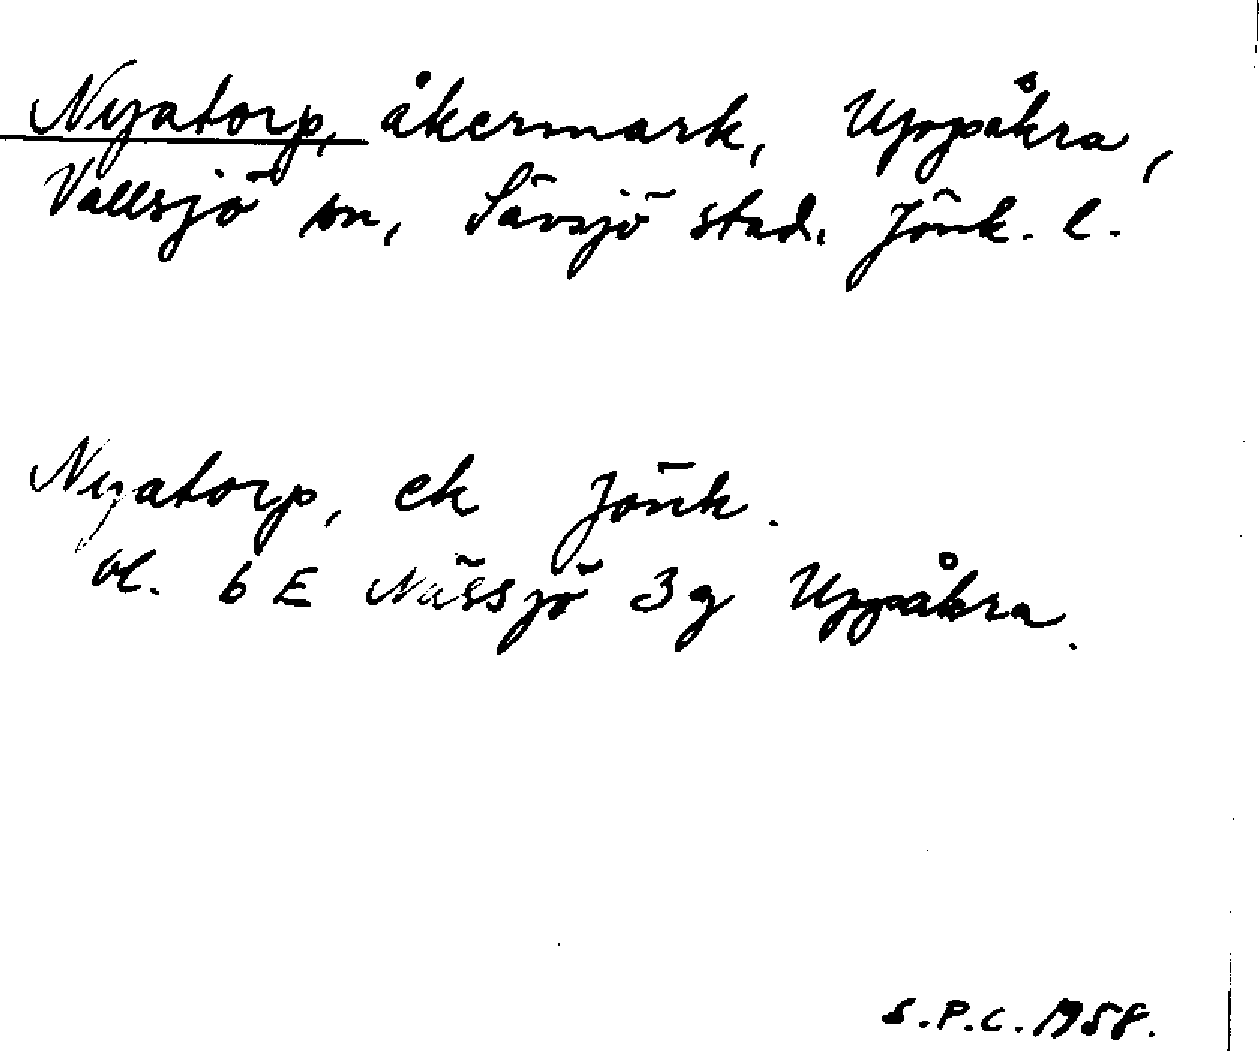 Nyatorp, åkermark, Uppåkra,
Vallsjö sn, Sävsjö stad. Jönk. l.
Nyatorp, ek Jönk.
bl. 6 E Nässjö 3 g Uppåkra.
S.P.C. 1958.